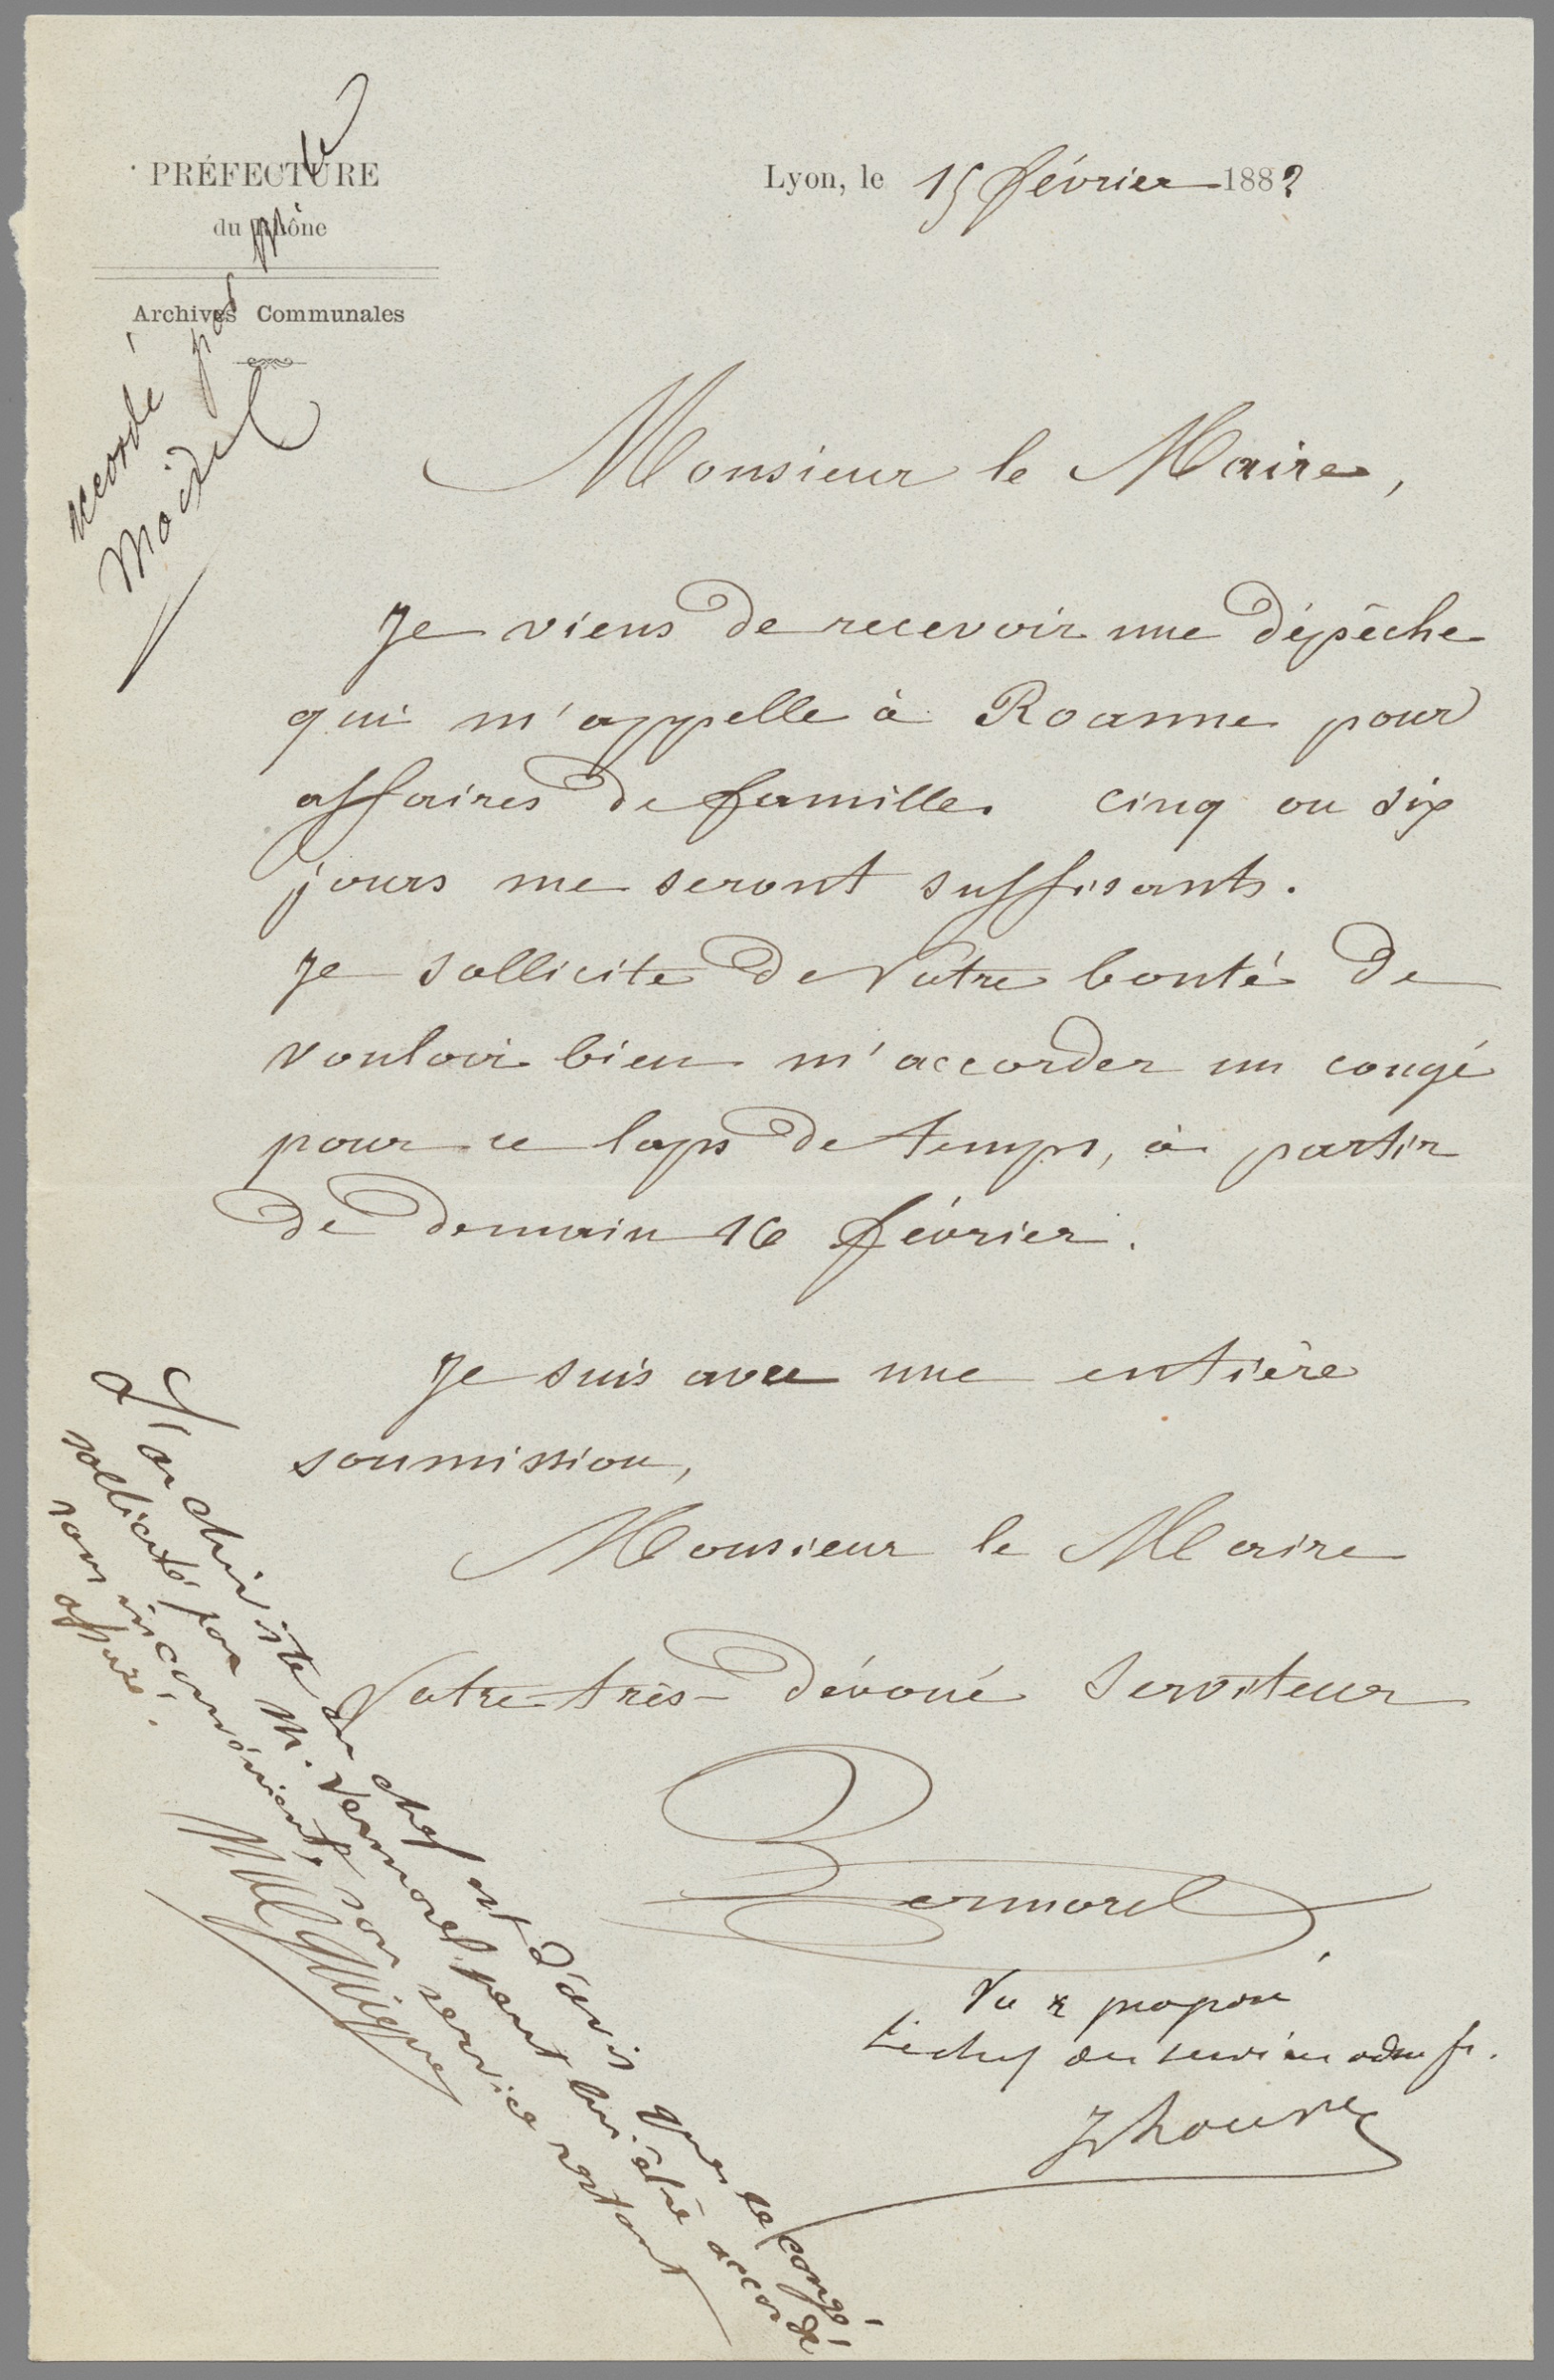 PRÉFECTURE
du Rhône
Archives Communales
Lyon, le 15 février 1882
accordé par M. le
Monsieur le Maire,
Je viens de recevoir une dépêche
qui m'appelle à Roanne pour
affaires de famille. cinq ou six
jours me seront suffisants.
Je sollicite de Votre bonté de
vouloir bien m'accorder un congé
pour ce laps de temps, à partir
de demain 16 février.
Je suis avec une entière
soumission,
Monsieur le Maire
Votre très-dévoué serviteur
Vermorel
L'archiviste en chef est d'avis que le congé
sollicité par M. Vermorel peut lui être accordé
sans inconvénient, son service restant
assuré.
M C Guigue
Vu & proposé
Le chef du service admf.